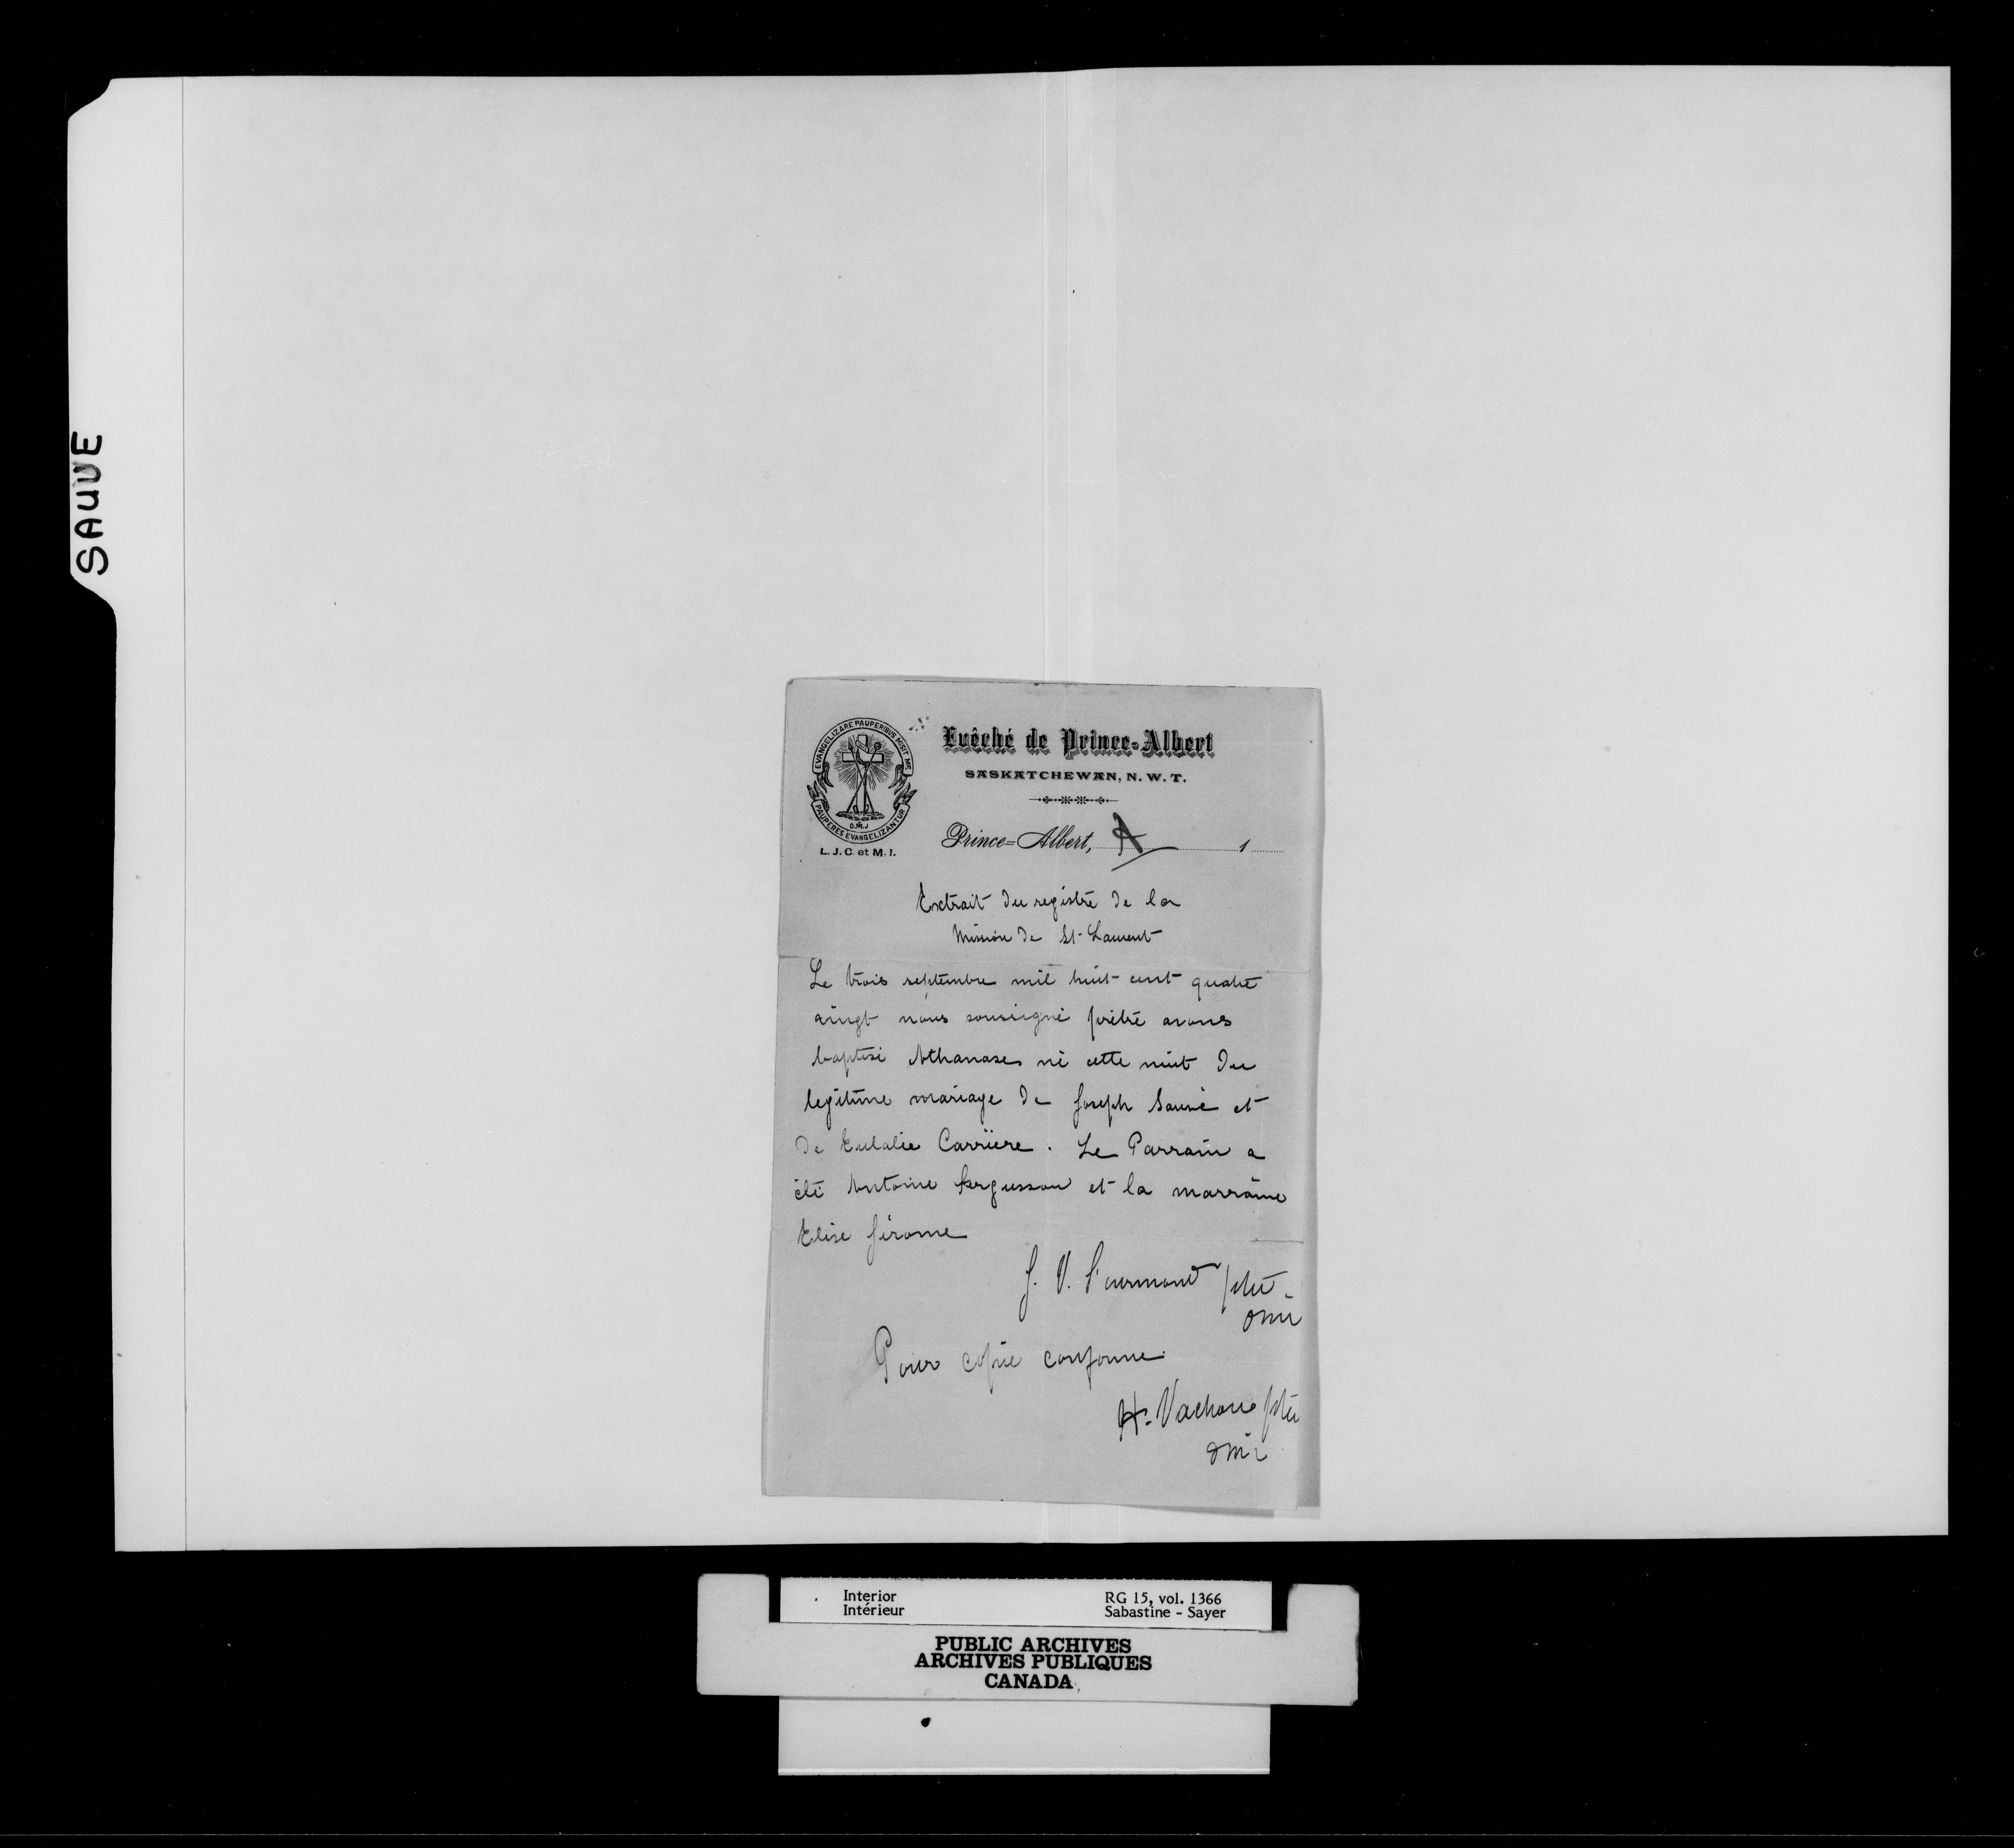 SAUVE
EVANGELIZARE PAUPERIBUS MISIT ME
PAUPERES EVANGELIZANTUR
O.M.J
L. J. C. et M. I.
Evêché de Prince-Albert
SASKATCHEWAN, N. W. T.
Prince=Albert, A 1
Extrait du registre de la
Mission de St-Laurent
Le trois septembre mil huit-cent quatre
vingt nous soussigné prêtre avons
baptisé Athanase né cette nuit du
legitime mariage de Joseph Sauvé et
de Eulalie Carrière. Le Parrain a
été Antoine Fergusson et la marraine
Elise Jérome
J. V. Fourmond ptre
omi
Pour copie conforme
H. Vachon ptre
omi
Interior
Intérieur
RG 15, vol. 1366
Sabastine - Sayer
PUBLIC ARCHIVES
ARCHIVES PUBLIQUES
CANADA